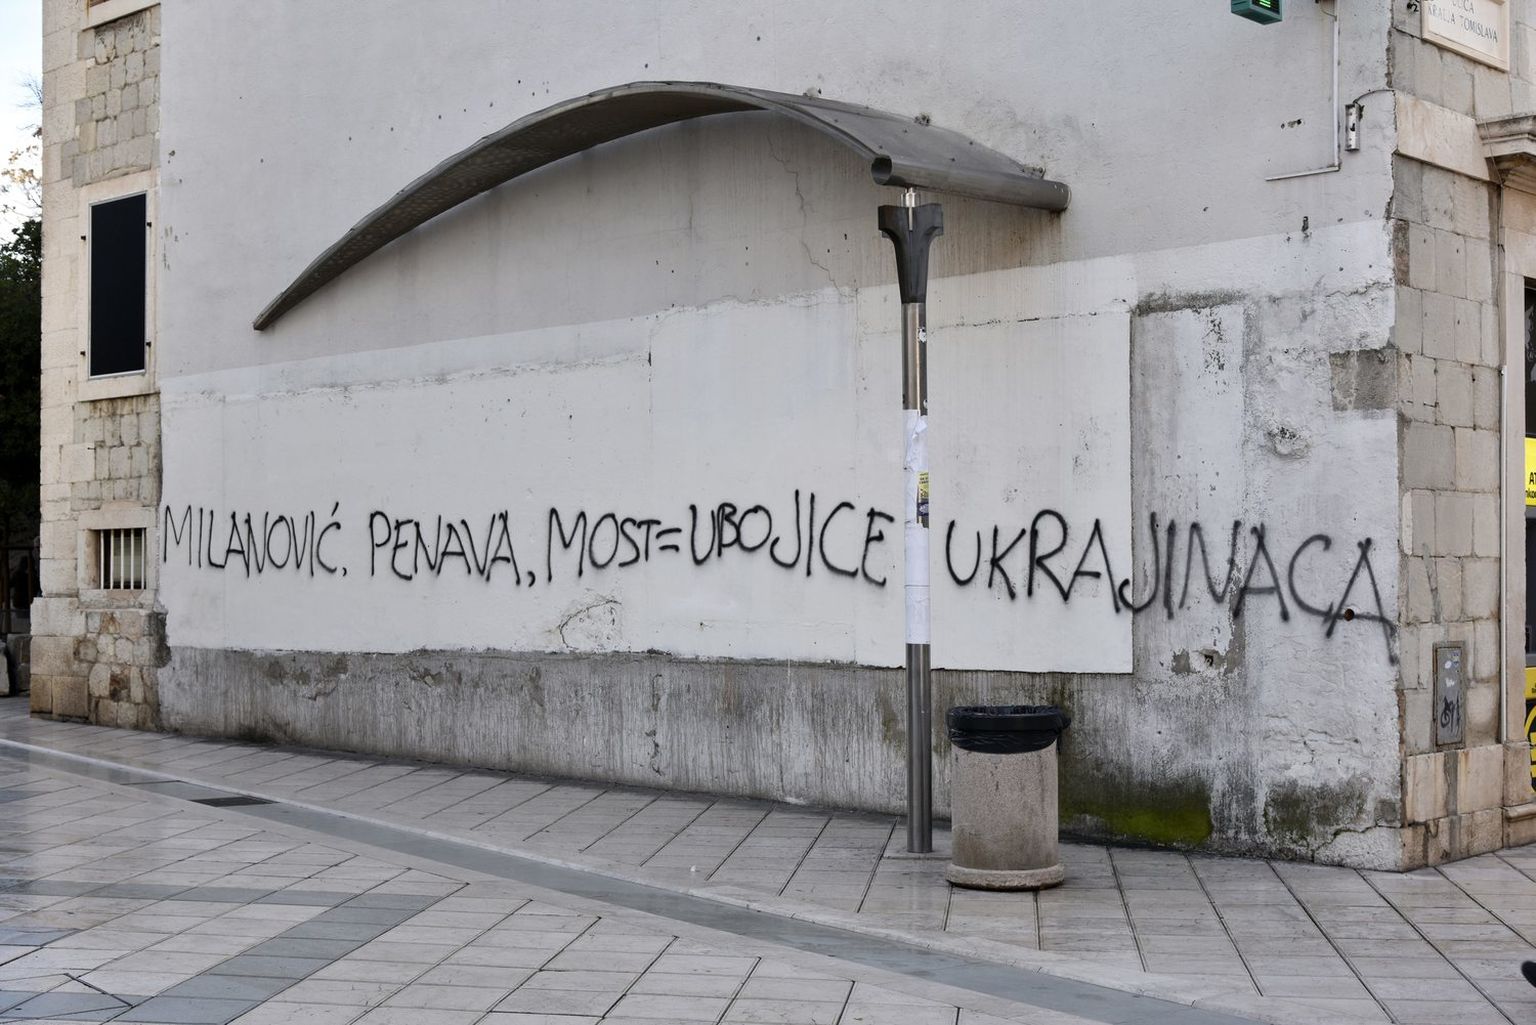 ULICA
KRALJA TOMISLAVA
MILANOVIĆ, PENAVA, MOST=UBOJICE UKRAJINACA